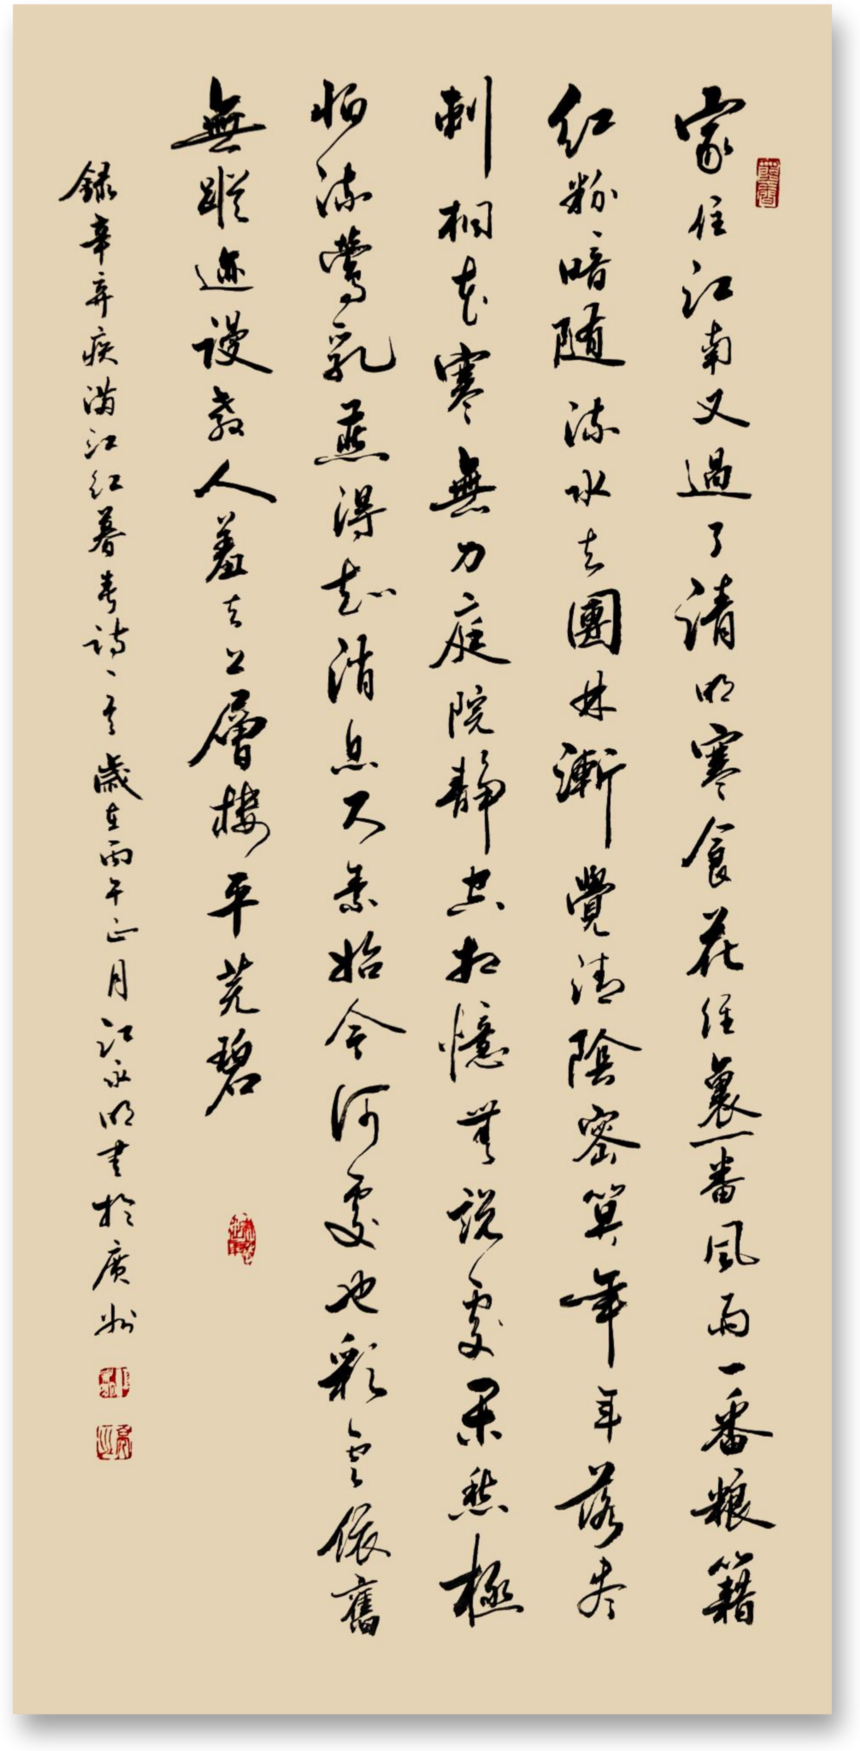 家住江南又過了清明寒食花径裏一番風雨一番粮籍
紅粉暗随流水去團林漸覺清陰密算年年落尽
刺桐花寒無力庭院静空相憶無説處閑愁極
怕流鶯乳燕得知消息尺素始今何處也彩雲依舊
無蹤迹謾教人羞去上層樓平芜碧
録辛弃疾满江紅暮春詩一首歲在丙午正月江永明書於廣州